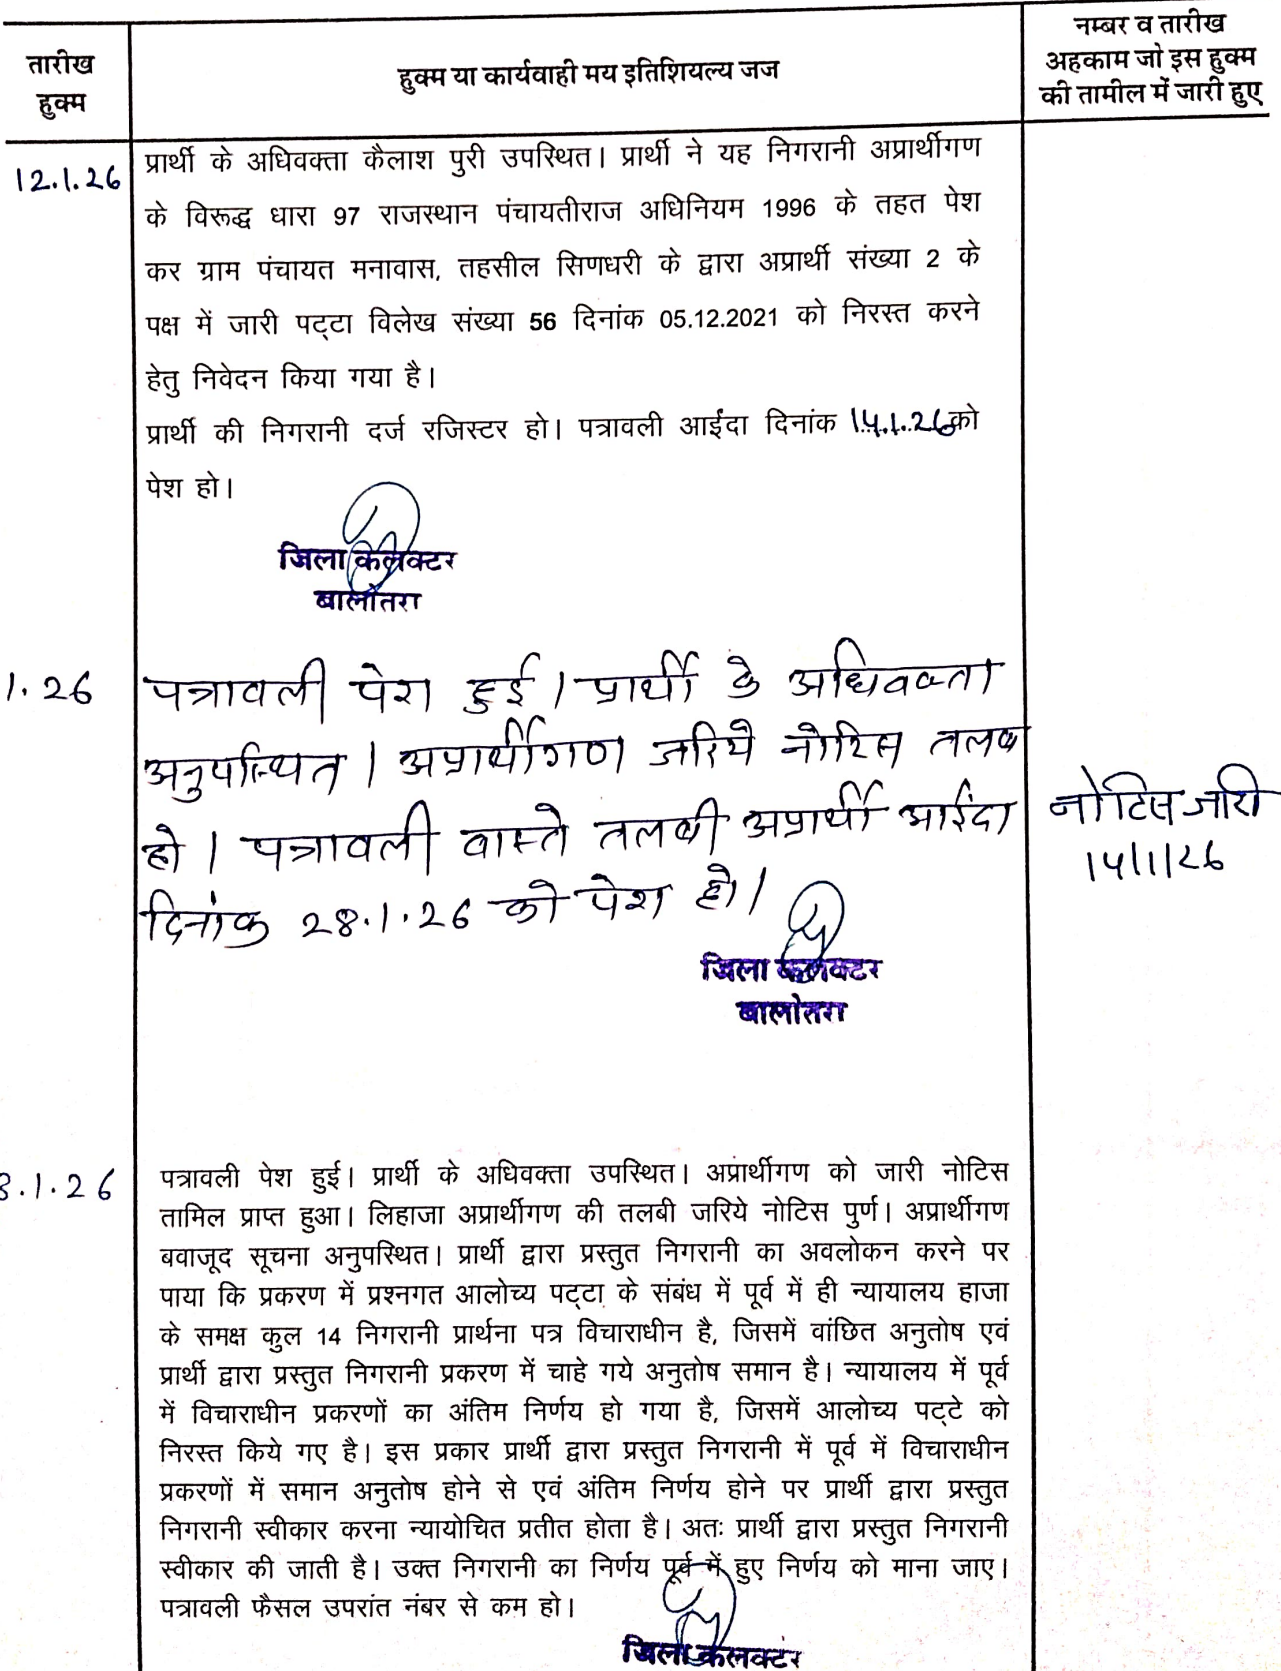 तारीख
हुक्म
हुक्म या कार्यवाही मय इतिशियल्य जज
नम्बर व तारीख
अहकाम जो इस हुक्म
की तामील में जारी हुए
12.1.26
प्रार्थी के अधिवक्ता कैलाश पुरी उपस्थित। प्रार्थी ने यह निगरानी अप्रार्थीगण
के विरूद्ध धारा 97 राजस्थान पंचायतीराज अधिनियम 1996 के तहत पेश
कर ग्राम पंचायत मनावास, तहसील सिणधरी के द्वारा अप्रार्थी संख्या 2 के
पक्ष में जारी पट्टा विलेख संख्या 56 दिनांक 05.12.2021 को निरस्त करने
हेतु निवेदन किया गया है।
प्रार्थी की निगरानी दर्ज रजिस्टर हो। पत्रावली आईंदा दिनांक 14.1.26 को
पेश हो।
जिला कलक्टर
बालोतरा
1.26
पत्रावली पेश हुई। प्रार्थी के अधिवक्ता
अनुपस्थित। अप्रार्थीगण जरिये नोटिस तलब
हो। पत्रावली वास्ते तलबी अप्रार्थी आईंदा
दिनांक 28.1.26 को पेश हो।
नोटिस जारी
14/1/26
जिला कलक्टर
बालोतरा
8.1.26
पत्रावली पेश हुई। प्रार्थी के अधिवक्ता उपस्थित। अप्रार्थीगण को जारी नोटिस
तामिल प्राप्त हुआ। लिहाजा अप्रार्थीगण की तलबी जरिये नोटिस पुर्ण। अप्रार्थीगण
बवाजूद सूचना अनुपस्थित। प्रार्थी द्वारा प्रस्तुत निगरानी का अवलोकन करने पर
पाया कि प्रकरण में प्रश्नगत आलोच्य पट्टा के संबंध में पूर्व में ही न्यायालय हाजा
के समक्ष कुल 14 निगरानी प्रार्थना पत्र विचाराधीन है, जिसमें वांछित अनुतोष एवं
प्रार्थी द्वारा प्रस्तुत निगरानी प्रकरण में चाहे गये अनुतोष समान है। न्यायालय में पूर्व
में विचाराधीन प्रकरणों का अंतिम निर्णय हो गया है, जिसमें आलोच्य पट्टे को
निरस्त किये गए है। इस प्रकार प्रार्थी द्वारा प्रस्तुत निगरानी में पूर्व में विचाराधीन
प्रकरणों में समान अनुतोष होने से एवं अंतिम निर्णय होने पर प्रार्थी द्वारा प्रस्तुत
निगरानी स्वीकार करना न्यायोचित प्रतीत होता है। अतः प्रार्थी द्वारा प्रस्तुत निगरानी
स्वीकार की जाती है। उक्त निगरानी का निर्णय पूर्व में हुए निर्णय को माना जाए।
पत्रावली फैसल उपरांत नंबर से कम हो।
जिला कलक्टर